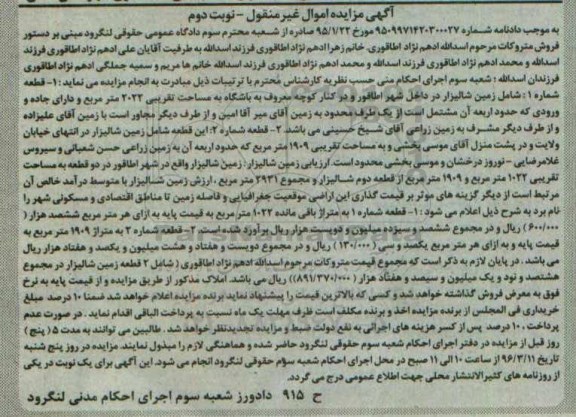 آگهی مزایده اموال غیر منقول - نوبت دوم
به موجب دادنامه شماره ۹۵۰۹۹۷۱۴۲۰۳۰۰۰۲۷ مورخ ۹۵/۱/۲۲ صادره از شعبه محترم سوم دادگاه عمومی حقوقی لنگرود مبنی بر دستور
فروش متروکات مرحوم اسدالله ادهم نژاد اطاقوری، خانم زهرا ادهم نژاد اطاقوری فرزند اسدالله به طرفیت آقایان علی ادهم نژاد اطاقوری فرزند
اسدالله و محمد ادهم نژاد اطاقوری فرزند اسدالله و محمد ادهم نژاد اطاقوری فرزند اسدالله خانم ها مریم و سمیه جملگی ادهم نژاد اطاقوری
فرزندان اسدالله ؛ شعبه سوم اجرای احکام منی حسب نظریه کارشناس محترم با ترتیبات ذیل مبادرت به انجام مزایده می نماید : ۱- قطعه
شماره ۱ : شامل زمین شالیزار در داخل شهر اطاقور و در کنار کوچه معروف به باشگاه به مساحت تقریبی ۲۰۲۲ متر مربع و دارای جاده و
ورودی که حدود اربعه آن مشتمل است از یک طرف محدود به زمین آقای میر آقا امین و از طرف دیگر مجاور است با زمین آقای علیزاده
و از طرف دیگر مشرف به زمین زراعی آقای شیخ حسینی می باشد. ۲- قطعه شماره ۲ : این قطعه شامل زمین شالیزار در انتهای خیابان
ولایت و در پشت منزل آقای موسی بخشی و به مساحت تقریبی ۱۹۰۹ متر مربع که حدود اربعه آن به زمین زراعی حسن شعبانی و سیروس
غلامرضایی - نوروز درخشان و موسی بخشی محدود است. ارزیابی زمین شالیزار : زمین شالیزار واقع در شهر اطاقور در دو قطعه به مساحت
تقریبی ۱۰۲۲ متر مربع و ۱۹۰۹ متر مربع از قطعه دوم شالیزار و مجموع ۲۹۳۱ متر مربع ، ارزش زمین شالیزار با متوسط درآمد خالص آن
مرتبط است از دیگر گزینه های موثر بر قیمت گذاری این اراضی موقعیت جغرافیایی و فاصله زمین تا مناطق اقتصادی و مسکونی شهر را
نام برد به شرح ذیل اعلام می شود : ۱- قطعه شماره ۱ به متراژ باقی مانده ۱۰۲۲ متر مربع به قیمت پایه به ازای هر متر مربع ششصد هزار (
۶۰۰/۰۰۰) ریال و در مجموع ششصد و سیزده میلیون و دویست هزار ریال برآورد شده است. ۲- قطعه شماره ۲ به متراژ ۱۹۰۹ متر مربع به
قیمت پایه و به ازای هر متر مربع یکصد و سی ( ۱۳۰/۰۰۰) ریال و در مجموع دویست و هفتاد و هشت میلیون و یکصد و هفتاد هزار ریال
می باشد. در پایان لازم به ذکر است که مجموع قیمت متروکات مرحوم اسدالله ادهم نژاد اطاقوری ( شامل ۲ قطعه زمین شالیزار در مجموع
هشتصد و نود و یک میلیون و سیصد و هفتاد هزار ( ۸۹۱/۳۷۰/۰۰۰)) ریال می باشد. املاک مذکور از طریق مزایده و از قیمت پایه به نرخ
فوق به معرض فروش گذاشته خواهد شد و کسی که بالاترین قیمت را پیشنهاد نماید برنده مزایده اعلام خواهد شد ضمنا ۱۰ درصد مبلغ
خریداری فی المجلس از برنده مزایده اخذ و برنده مکلف است ظرف مهلت یک ماه نسبت به پرداخت الباقی اقدام نماید . در صورت عدم
پرداخت ، ۱۰ درصد پس از کسر هزینه های اجرائی به نفع دولت ضبط و مزایده تجدیدنظر خواهد شد . طالبین می توانند به مدت ۵ ( پنج )
روز قبل از مزایده در دفتر اجرای احکام شعبه سوم حقوقی لنگرود حاضر شده و هماهنگی لازم را مبذول نمایند. مزایده در روز پنج شنبه
تاریخ ۹۶/۳/۱۱ از ساعت ۱۰ الی ۱۱ صبح در محل اجرای احکام شعبه سوم حقوقی لنگرود انجام می شود. این آگهی برای یک نوبت در یکی
از روزنامه های کثیرالانتشار محلی جهت اطلاع عمومی درج می گردد.
ح ۹۱۵ دادورز شعبه سوم اجرای احکام مدنی لنگرود